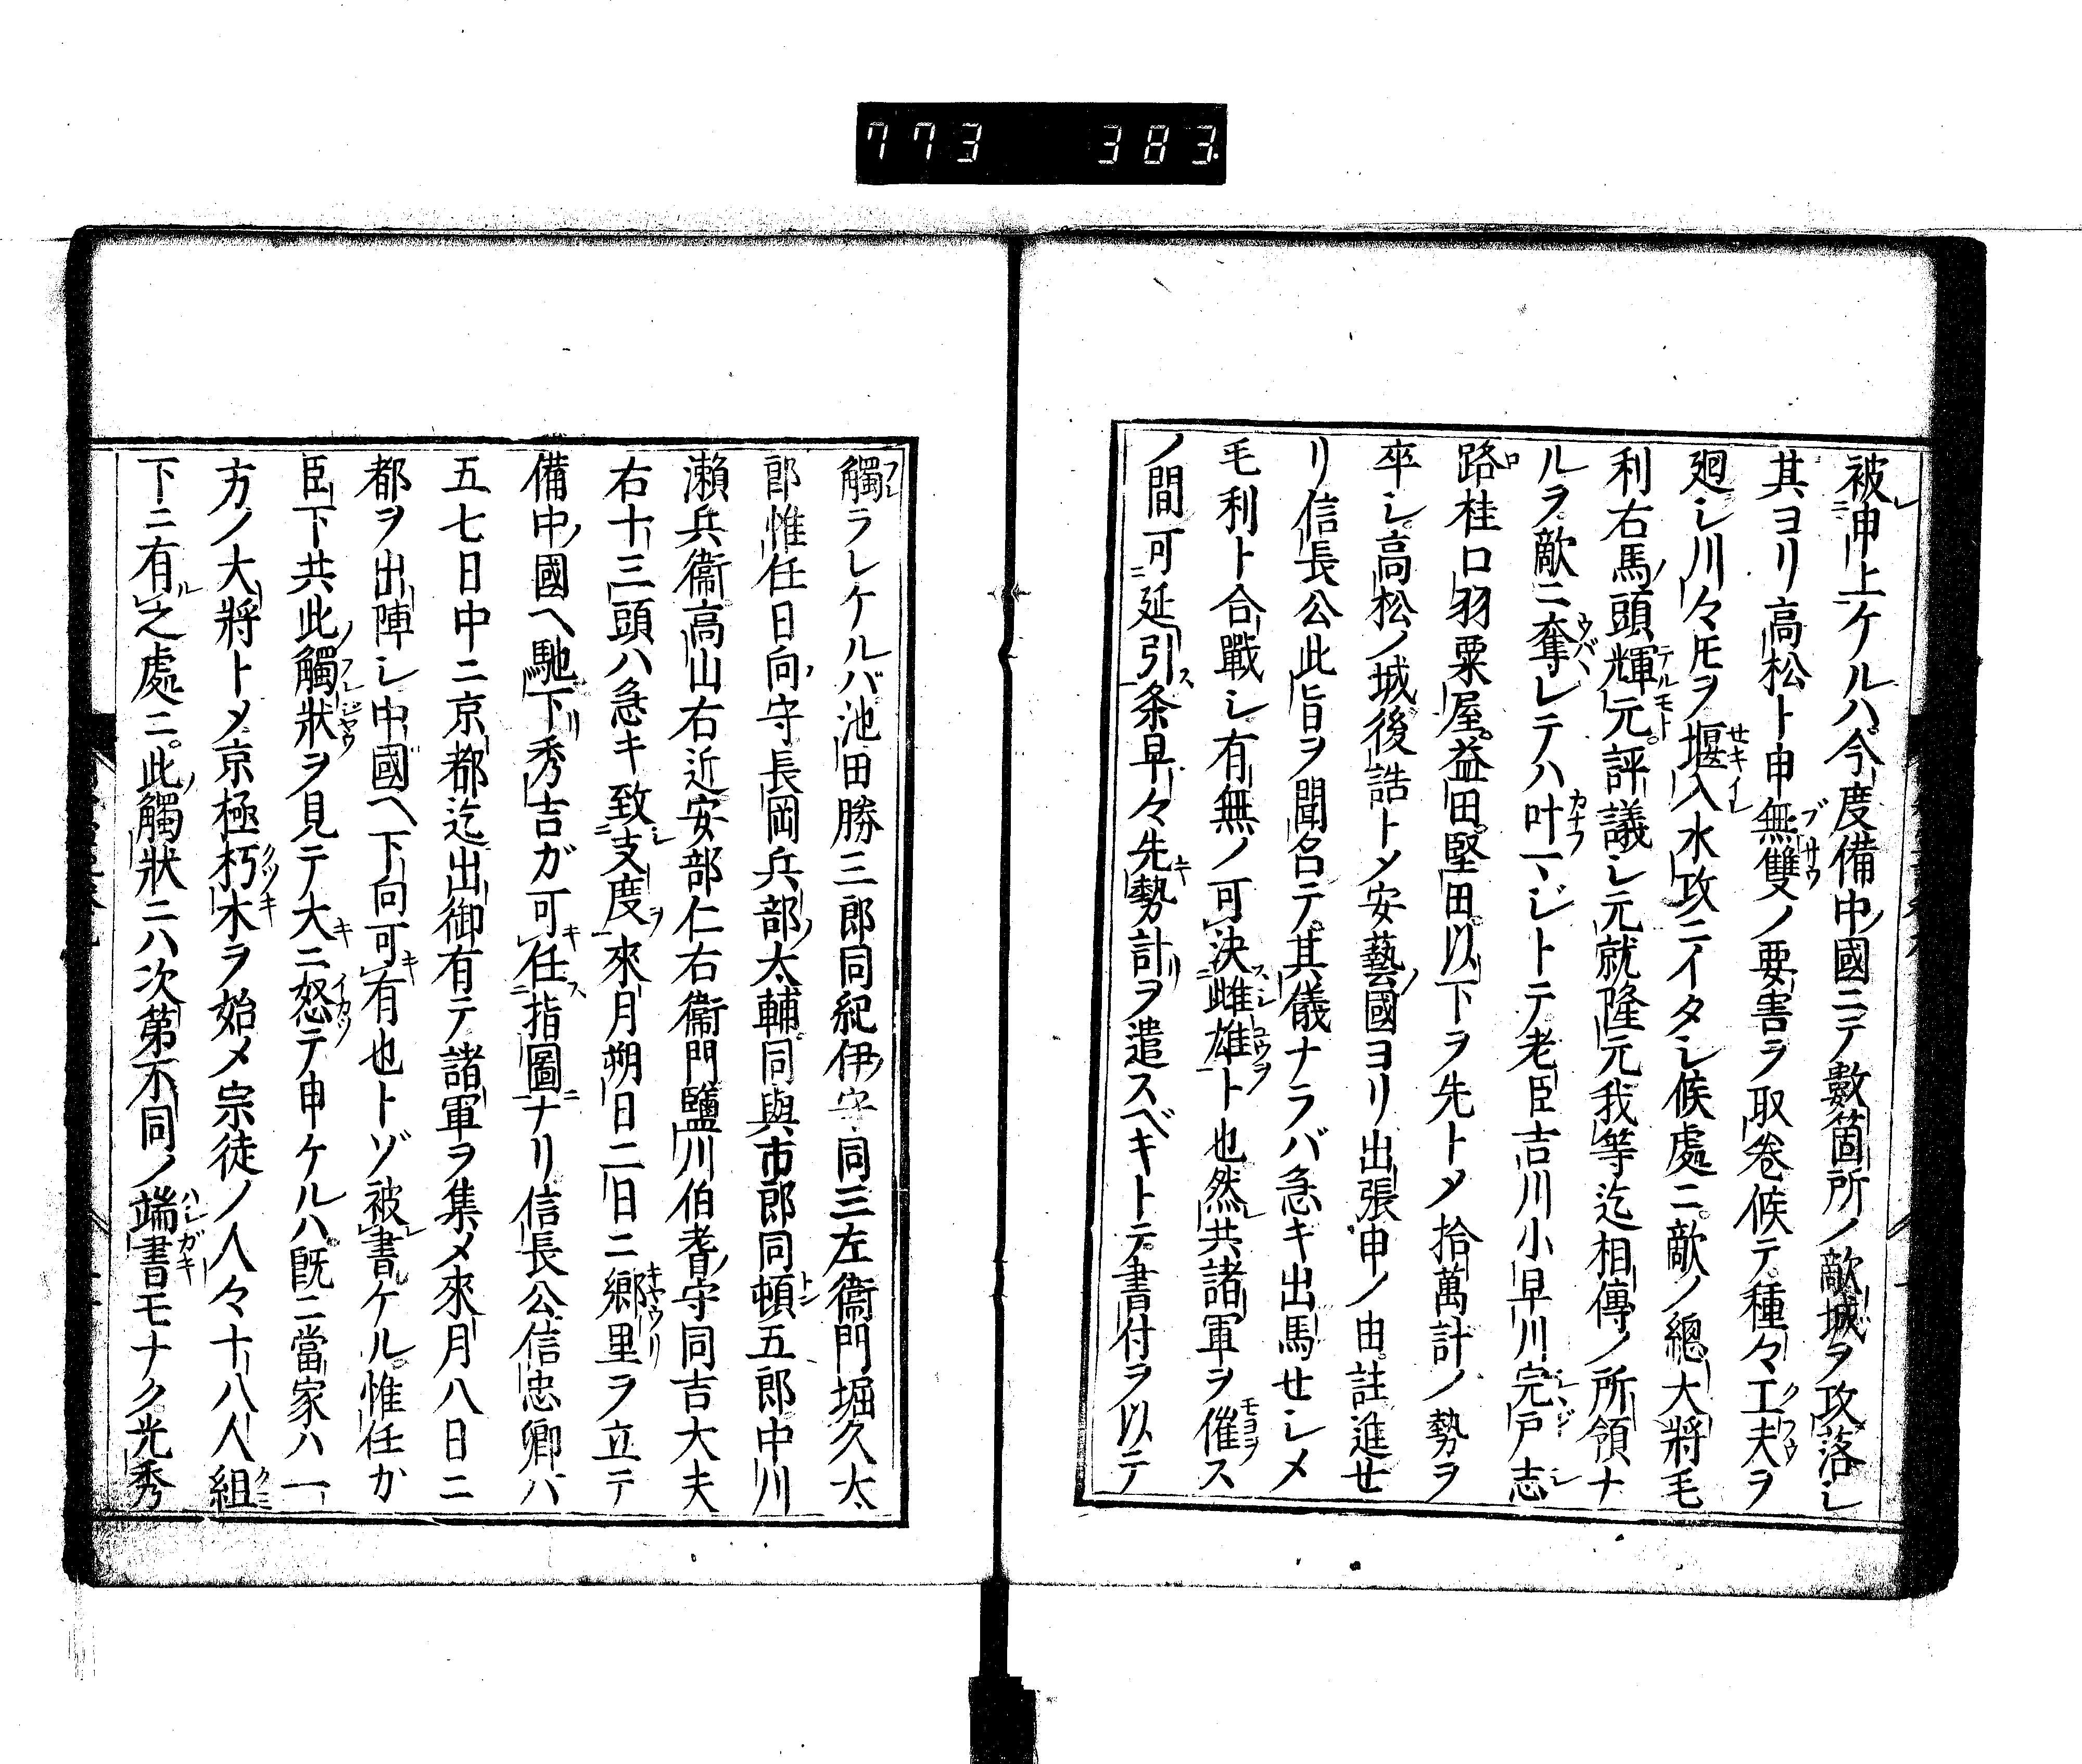 773 383
被申上ケルハ今度備中國ニテ數箇所ノ敵城ヲ攻落シ
其ヨリ高松ト申無雙ノ要害ヲ取卷候テ種々工夫ヲ
廻シ川々𪜈ヲ堰入水攻ニイタシ候處ニ敵ノ總大將毛
利右馬頭輝元評議シ元就隆元我等迄相傳ノ所領ナ
ルヲ敵ニ奪レテハ叶マジトテ老臣吉川小早川完戸志
路桂口羽粟屋益田堅田以下ヲ先トメ拾萬計ノ勢ヲ
卒シ高松ノ城後詰トメ安藝國ヨリ出張申ノ由註進せ
リ信長公此旨ヲ聞召テ其儀ナラバ急キ出馬せシメ
毛利ト合戰シ有無ノ可決雌雄ト也然共諸軍ヲ催ス
ノ間可延引条早々先勢計ヲ遣スベキトテ書付ヲ以テ
觸ラレケルバ池田勝三郎同紀伊守同三左衞門堀久太
郎惟任日向守長岡兵部太輔同與市郎同頓五郎中川
瀨兵衞高山右近安部仁右衞門鹽川伯耆守同吉大夫
右十三頭ハ急キ致支度來月朔日二日ニ郷里ヲ立テ
備中國ヘ馳下リ秀吉ガ可任指圖ナリ信長公信忠卿ハ
五七日中ニ京都迄出御有テ諸軍ヲ集メ來月八日ニ
都ヲ出陣シ中國ヘ下向可有也トゾ被書ケル惟任カ
臣下共此觸狀ヲ見テ大ニ怒テ申ケルハ既ニ當家ハ一
方ノ大將トメ京極朽木ヲ始メ宗徒ノ人々十八人組
下ニ有之處ニ此觸狀ニハ次第不同ノ端書モナク光秀